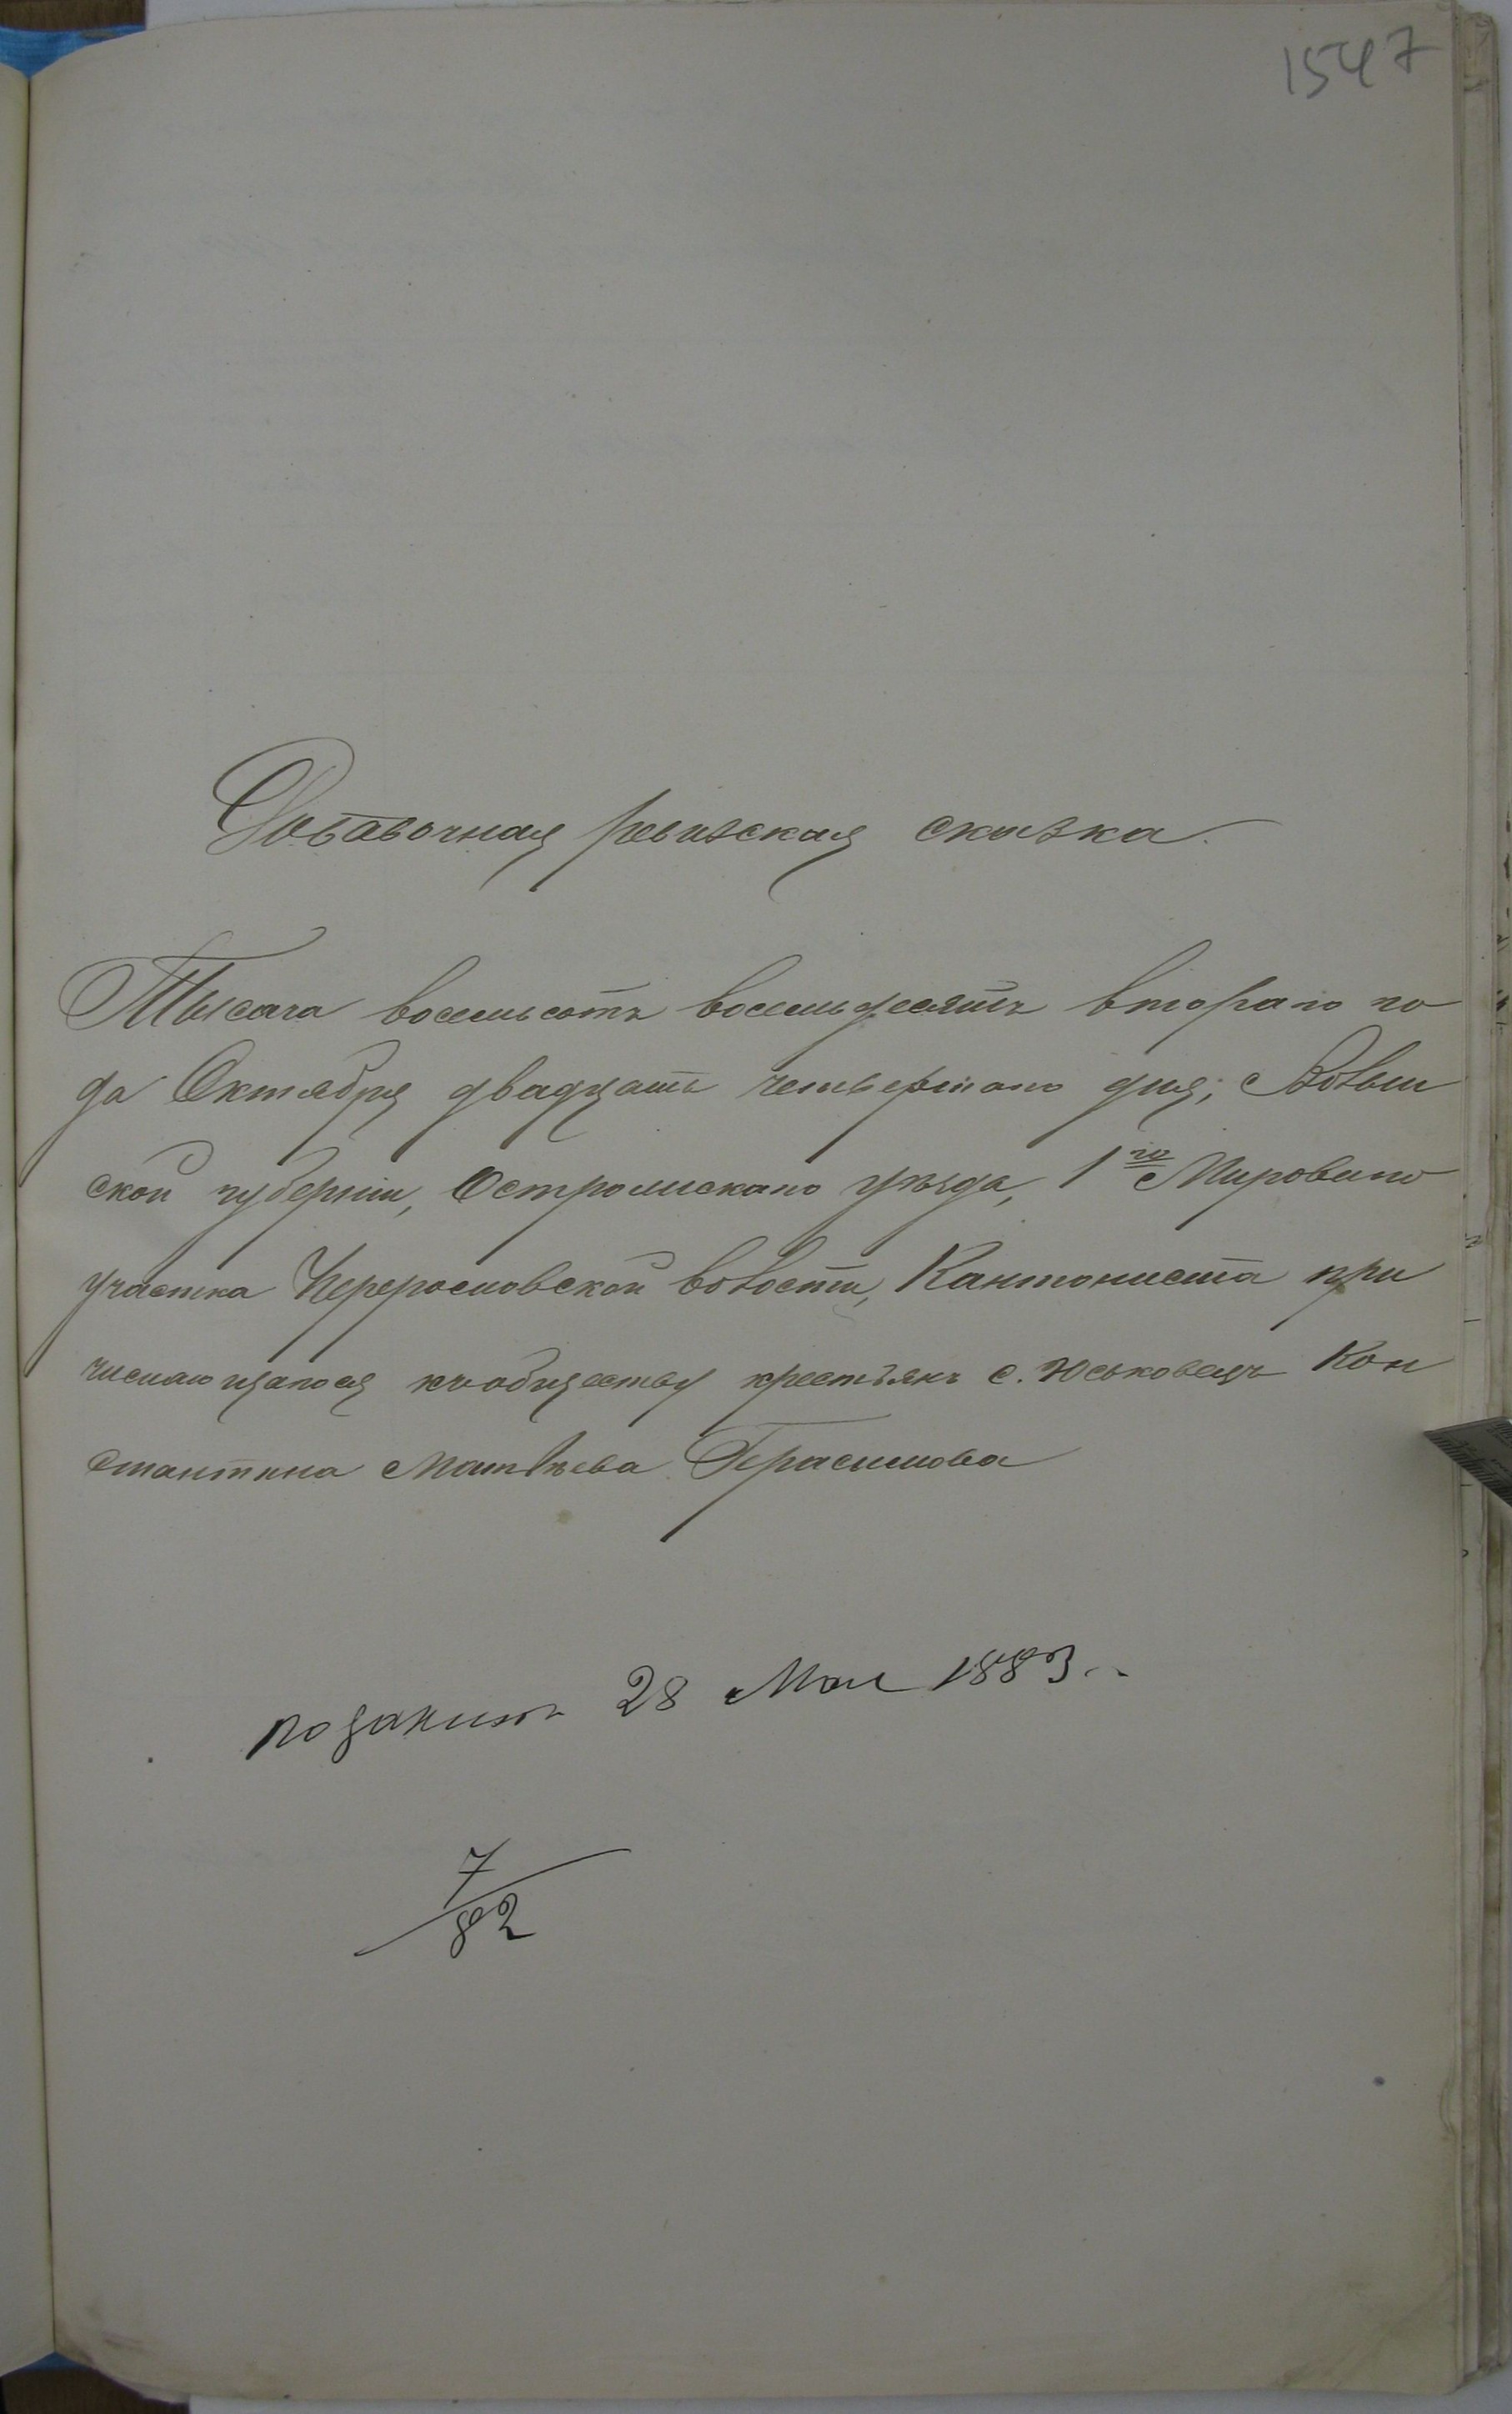 1547
Добавочная ревизская сказка.
Тысяча восемьсотъ восемьдесятъ втораго го
да Октября двадцать четвертаго дня; Волын
ской губерніи, Острожскаго уѣзда, 1го Мироваго
участка Перерословской волости, Кантониста при
числяющагося къ обществу крестьянъ с. Юськовецъ Кон
стантина Матвѣева Герасимова
28 Мая 1883
7/82